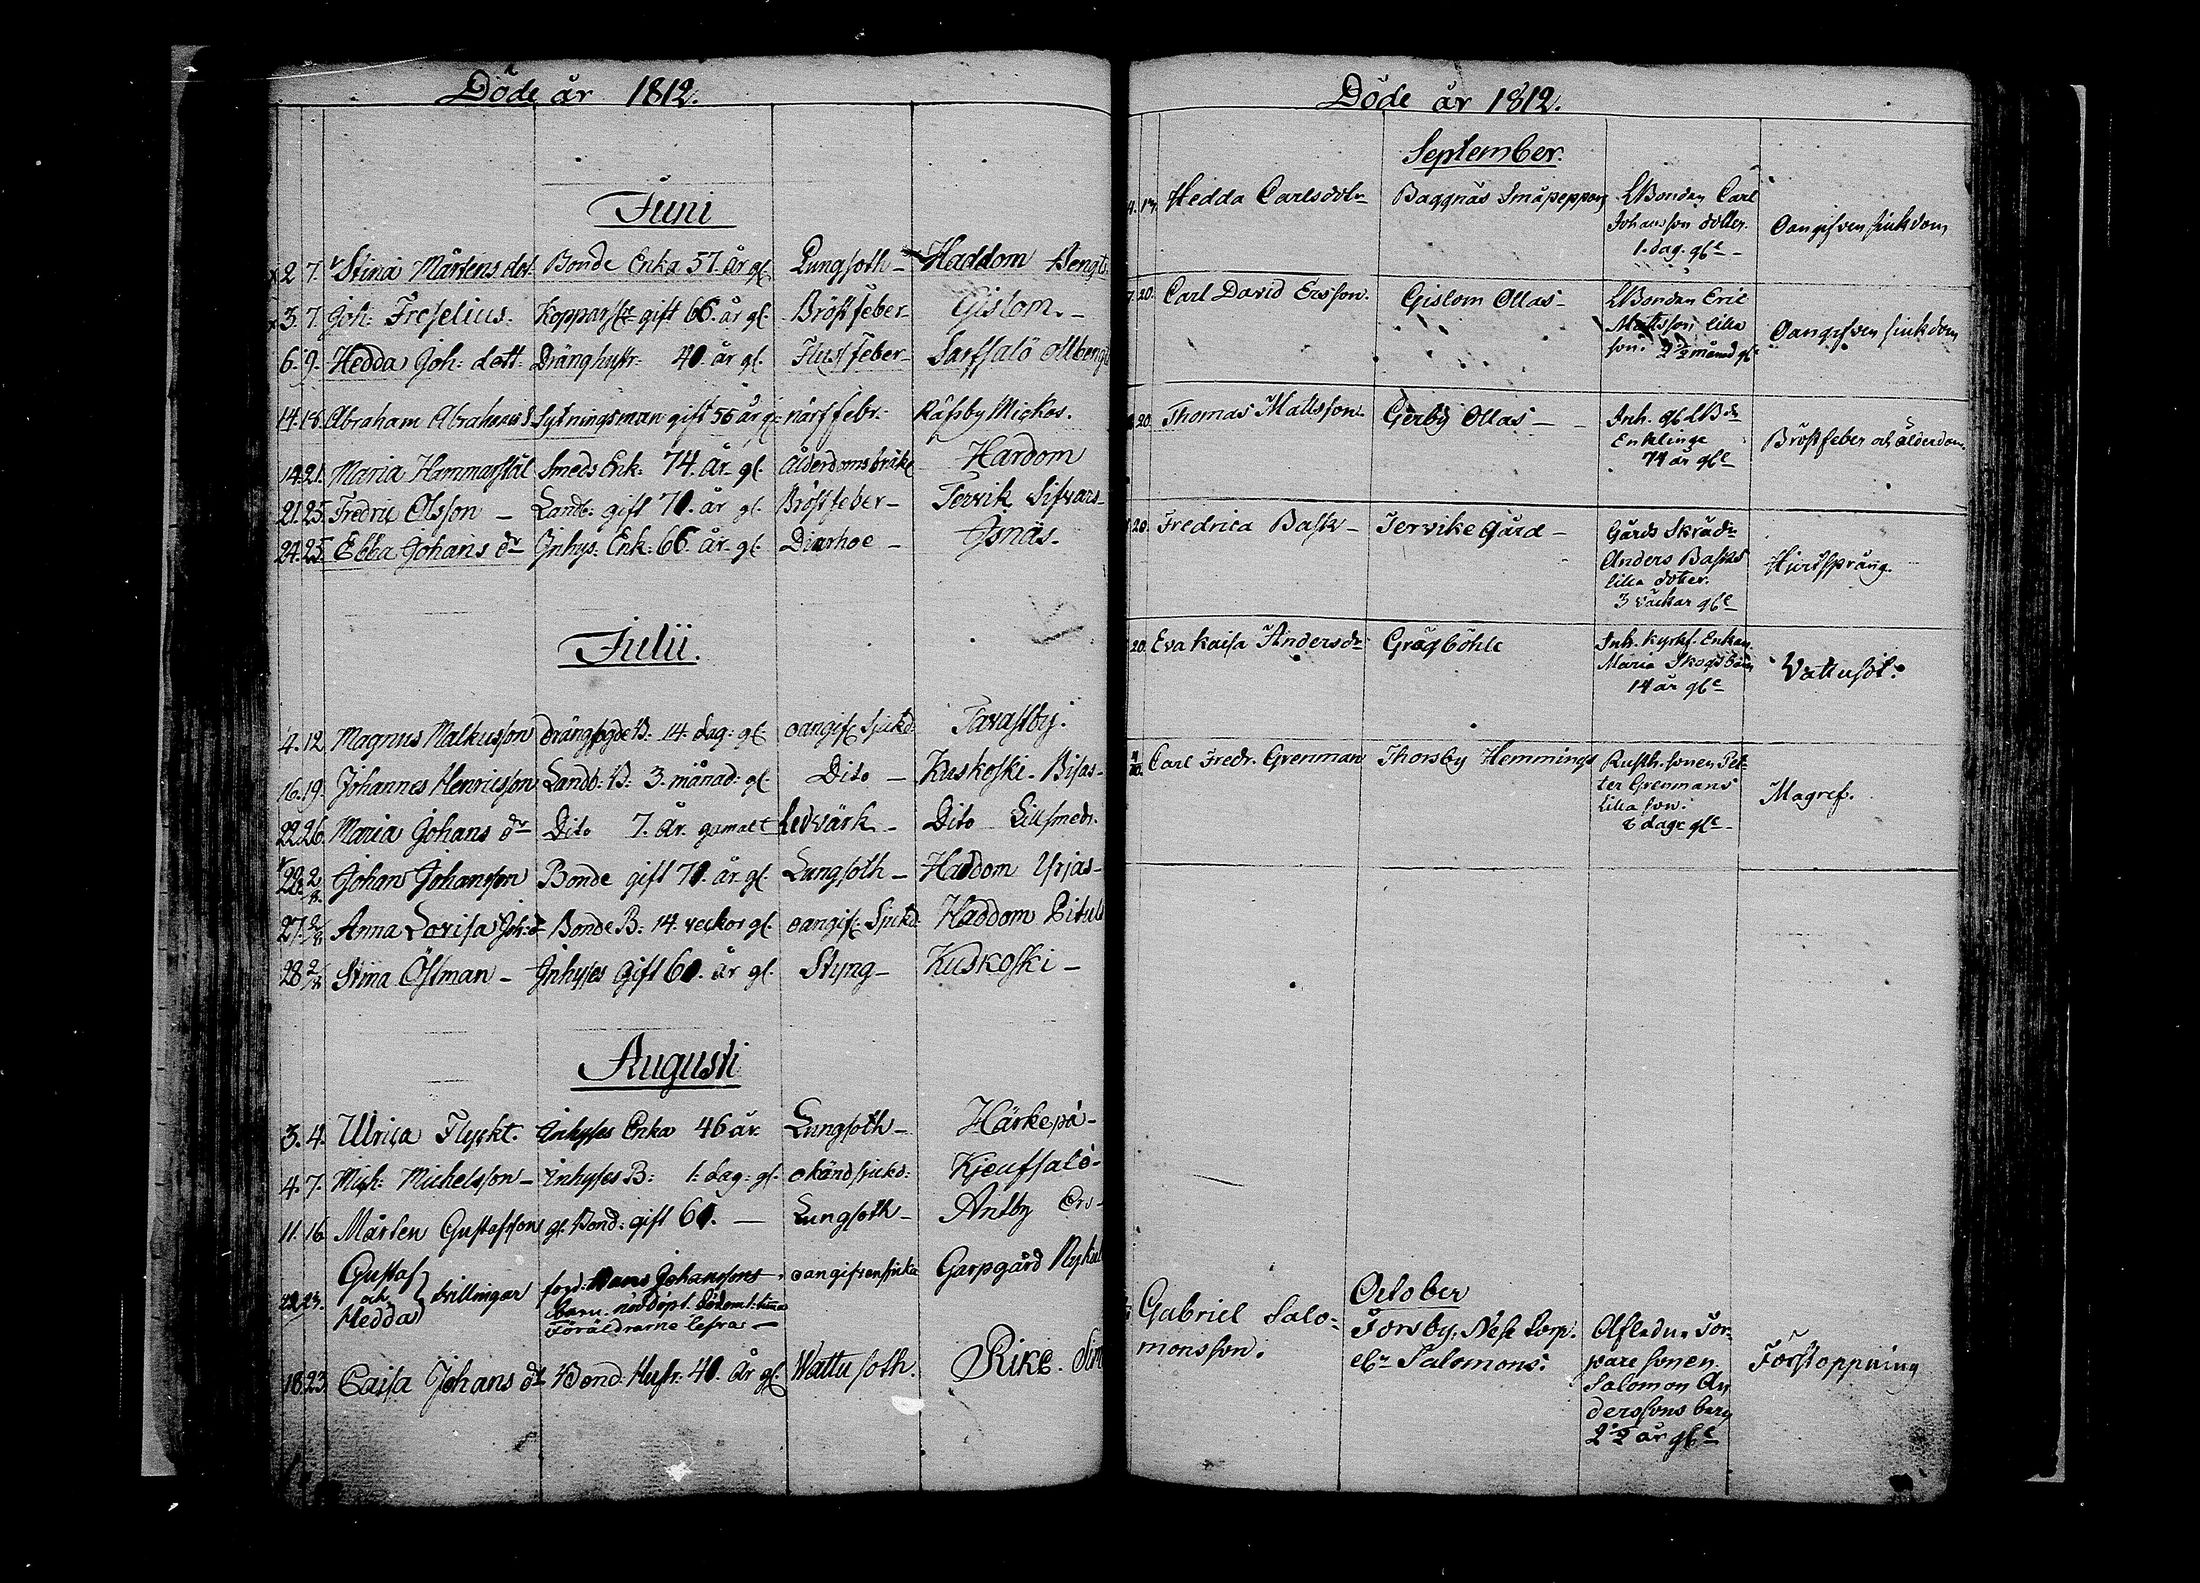 Döde år 1812.
Juni
2 7. Stina Mårtens dot. Bonde Enka 57. år gl. Lungsoth - Haddom Bengts
3. 7. Joh: Freselius. gift 66. år gl. Bröstfeber Gislom. -
6. 9. Hedda Joh: dott. Dränghustr: 40. år gl. Feber - Sarfsalö
14. 18. Abraham Abrahams S. Sytningsman gift 55 år gl: närffebr: Räfsby Mickos.
14. 21. Maria Hammarstål Smeds Enk: 74. år gl. ålderdomsbräkl. Hardom
21. 25. Fredric Olsson - Landb: gift 70. år gl. Bröstfeber - Tervik Sifvars -
24. 25. Ebba Johans dr Inhys. Enk: 66. år gl. Diarhoe - Isnäs.
Julii.
4. 12. Magnus Malkusson 14. dag: gl. oangif. Sjukd: Tavastby.
16. 19. Johannes Henricsson Landb: B: 3. månad: gl. Dito - Kuskoski - Bisas -
22. 26. Maria Johans dr Dito 7. år gamalt Ledvärk - Dito Lillsmeds.
22. 2/8. Johan Johansson Bonde gift 70. år gl. Lungsoth - Haddom Yrjas -
27. 2/8. Anna Lovisa Joh: d. Bonde B: 14. veckor gl. oangif: Sjukd: Haddom
28 2/8. Stina Östman - Inhyses Gift 60. år gl. Styng - Kuskoski -
Augusti
3. 4. Ulrica Flyckt. Inhyses Enka 46 år. Lungsoth - Härkepä -
4. 7. Mich: Michelsson - Inhyses B: 1. dag: gl. okänd sjukd: Kjeufsalö -
11. 16. Mårten Gustafsson gl. Bond: gift 60. - Lungsoth - Antby Ers -
Gustaf
och
Hedda
tvillingar Johanssons
Barn. nöddöpt.
Föräldrarne - oangifven sjuka Garpgård
18. 23. Caisa Johans dr Bond. Hustr: 40. år gl. Wattusoth. Rike.
Döde år 1812.
September.
4. 13. Hedda Carlsdotr Baggnäs Småpeppars LBonden Carl
Johansson dotter.
1. dag. gle - Oangifven siukdom
7. 20. Carl David Ersson. Gislom Ollas - LBonden Eric
Mattsson lilla
son. 2 1/2 månad gl. Oangifven siukdom
20. Thomas Mattsson Gerby Ollas - - Inh. gl LBd
Enklinge
74 år gle Bröstfeber och ålderdom.
20. Fredrica Bask - Tervike gård - Gårds Skräd
Anders Basks
lilla doter.
3 väckor gle Hiertsprång.
20. Eva Kaisa Andersdr Gräg böhle Inh. Kyrkf. Enkan
Maria
14 år gle Vattusot.
Carl Fredr. Grenman Thorsby Hemmings Rusth. sonen Pet-
ter Grenmans
lilla son.
6 dage gle - Magref.
October
Gabriel Salo-
monsson. Forsby, Torp.
Salomons. Aflednu Tor-
pare sonen
Salomon An
derssons barn
2 1/2 år gle Förstoppning